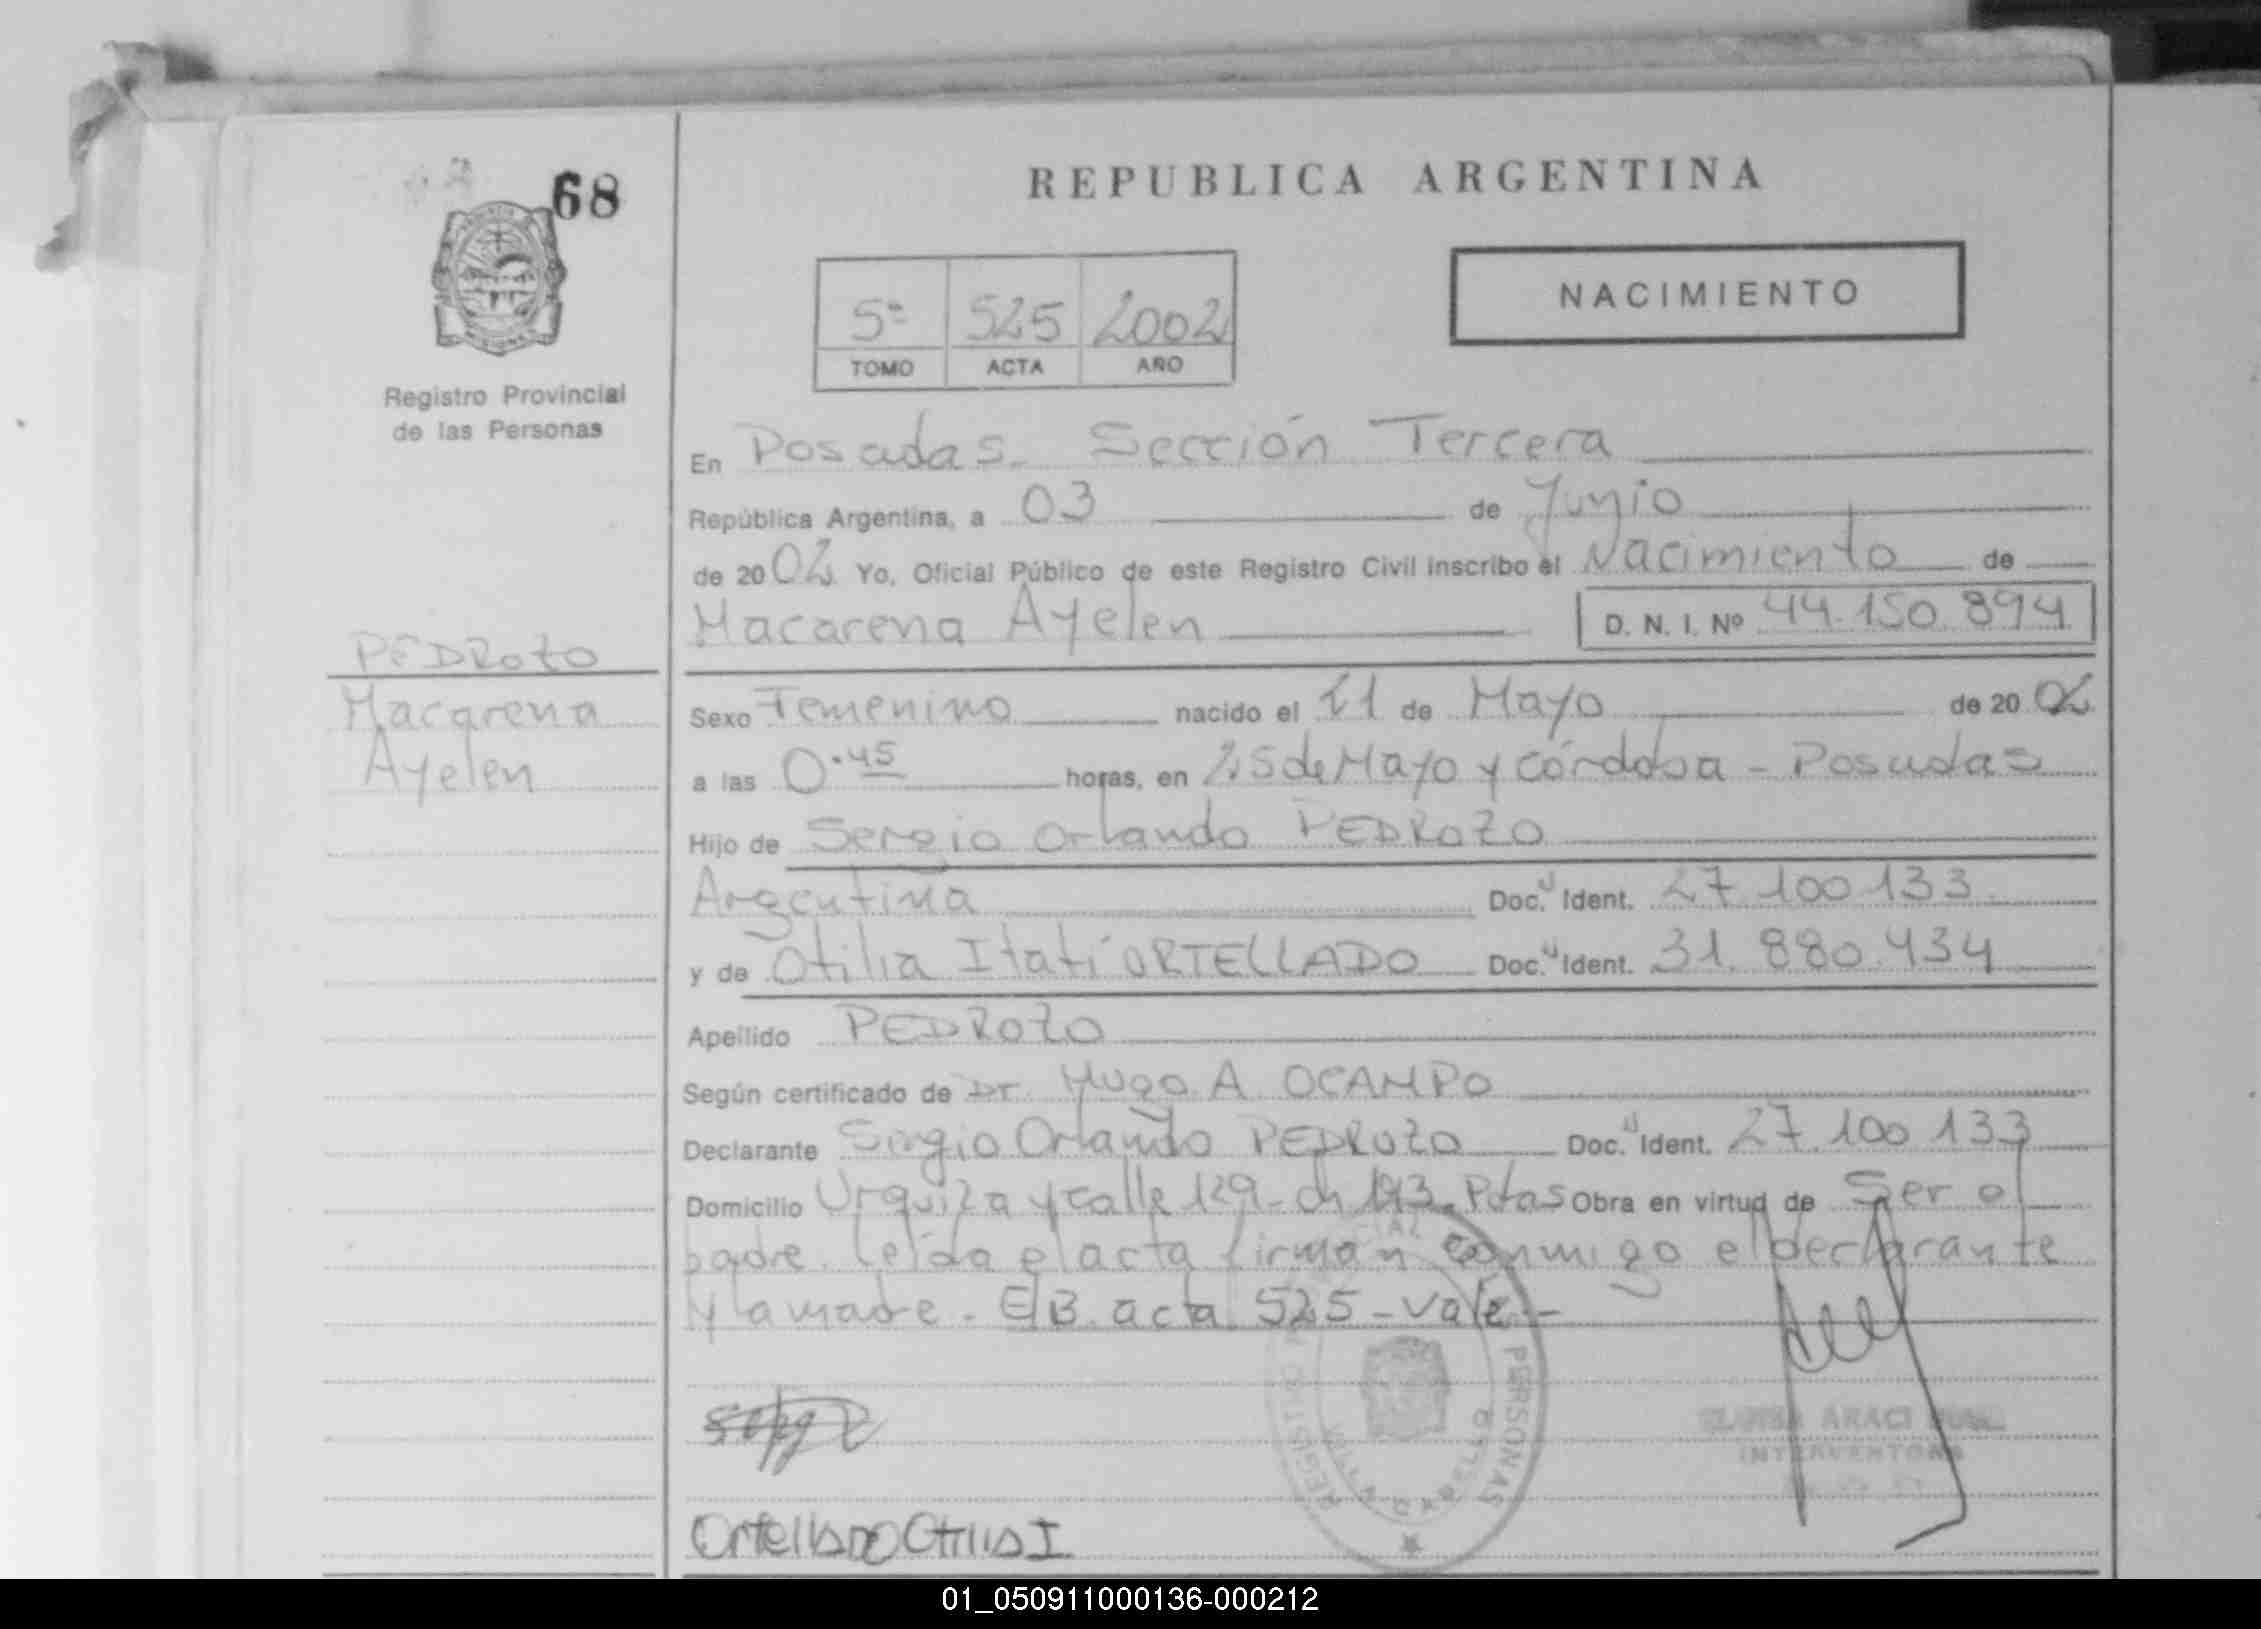 68
REPUBLICA ARGENTINA
NACIMIENTO
5º 525 2002
TOMO ACTA AÑO
Registro Provincial
de las Personas
En Posadas. Sección Tercera
República Argentina, a 03 de Junio
de 2002 Yo, Oficial Público de este Registro Civil inscribo el Nacimiento de
Macarena Ayelen D. N. I. Nº 44.150.894
PEDROZO
Macarena
Ayelen
Sexo Femenino nacido el 11 de Mayo de 2002
a las 0.45 horas, en 25 de Mayo y Córdoba - Posadas
Hijo de Sergio Orlando PEDROZO
Argentina Doc. Ident. 27.100.133
y de Otilia Itatí ORTELLADO Doc. Ident. 31.880.434
Apellido PEDROZO
Según certificado de Dr. Hugo A. OCAMPO
Declarante Sergio Orlando PEDROZO Doc. Ident. 27.100.133
Domicilio Urquiza y calle 129 - ch 193. Pdas Obra en virtud de Ser el
padre. Leída el acta firman conmigo el declarante
y la madre. E/B. acta 525 - Vale. -
REGISTRO PERSONAS
VILLA CABELLO
ARACI
INTERVENTORA
Ortellado Otilia I
01_050911000136-000212